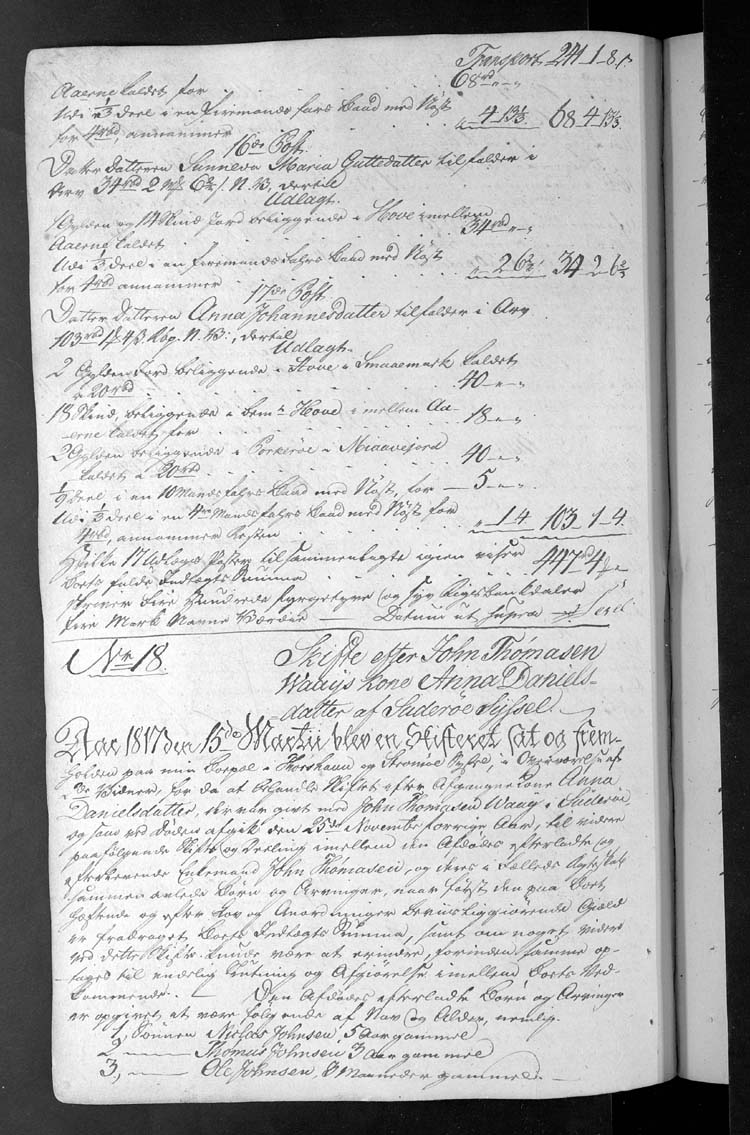 Transport 241 1 8
Aaerne kaldet for 68 rd „ „
Udi 1/3 Deel i en Firemands fars Baad med Nøst
for 4 rbd, annammer 4 13⅓ 68 4 13⅓
16de Post
Datter Datteren Sunneva Maria Guttedatter tilfalder i
Arv 34 rbd 2 mk 6⅔ s. N. V., dertil
Udlagt.
1 Gylden og 14 Skind Jord beliggende i Hove imellem
Aaerne kaldet 34 rd „ „
Udi 1/3 Deel i en Firemands fahrs Baad med Nøst
for 4 rbd annammer „ 2 6⅔ 34 2 6⅔
17de Post
Datter Datteren Anna Johannesdatter tilfalder i Arv
103 rbd 1 4 s N. V., dertil
Udlagt.
2 Gylden Jord beliggende i Hove i Smaaemark kaldet
a 20 rbd 40 „ „
18 Skind, beliggende i bemte Hove imellem Aa-
erne kaldet for 18 „ „
2 Gylden beliggende i Porkerøe i Nraavejord
kaldet a 20 rbd 40 „ „
1/9 Deel i en 10 Mands fahrs Baad med Nøst, for 5 „ „
Udi 1/3 Deel i en 4re Mands fahrs Baad med Nøst for
4 rbd, annammer Resten „ 1 4 103 1 4
Hvilke 17 Udlægs Poster tilsammenlagte igien viser
Boets fulde Indtægts Summa 447 rd 4 „
skriver fire Hundrede fyrgetyve og syv Rigsbankdaler
fire Mark Navne Værdie — Datum ut supra
Nr 18.
Skifte efter John Thomasen
Waays Kone Anna Daniels-
datter af Suderøe Syssel.
Aar 1817 den 15de Martii blev en Skifteret sat og frem-
holden paa min Boepæl i Thorshavn og Strømøe Syssel, i Overværelse af
Vidner, for da at behandle Skiftet efter Afgangne Kone Anna
Danielsdatter, der var givt med John Thomasen Waay i Suderøe
og som ved Døden afgik den 25de November forrige Aar, til videre
paafølgende Skifte og Deeling imellem den Afdødes efterladte og
efterlevende Enkemand John Thomasen, og deres i Fælleds Ægteskab
sammen avlede Børn og Arvinger, naar først den paa Boet
heftende og efter Lov og Anordninger beviisliggiørende Gield
er fradraget Boets Indtægts Summa, samt om noget videre
ved dette Skifte kunde være at erindre, forinden samme op-
tages til endelig Slutning og Afgiørelse imellem Boets Ved-
kommende. — Den Afdødes efterladte Børn og Arvinger
er opgivet at være følgende af Nav og Alder, nemlig.
1, Sønnen Niclas Johnsen, 5 Aar gammel
2, — Thomas Johnsen 3 Aar gammel
3, — Ole Johnsen, 3 Maaneder gammel. —